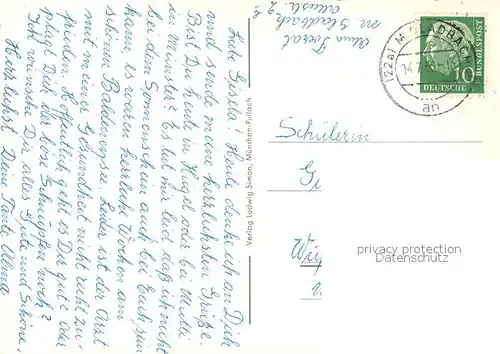 Liebe Gisela! Heute denke ich an Dich
und sende meine herzlichsten Grüße.
Bist Du heute in Hügel oder bei Mutti
in Neuster? Es tut mir leid, daß ich nicht
bei dem Sonnenschein auch bei Euch sein
kann, es waren herrliche Wochen am
schönen Baldeneysee. Leider ist der Arzt
mit meiner Gesundheit nicht recht zu-
frieden. Hoffentlich geht es Dir gut? oder
plagt Dich der böse Schnupfen noch?
Ich wünsche Dir alles Gute und Schöne,
Herzlichst Deine Tante Alma
Verlag Ludwig Simon, München-Pullach
Alma
M. Gladbach
(22a) M. GLADBACH
14.7.
an
10
DEUTSCHE
BUNDESPOST
Schülerin
Gi
privacy protection
Datenschutz